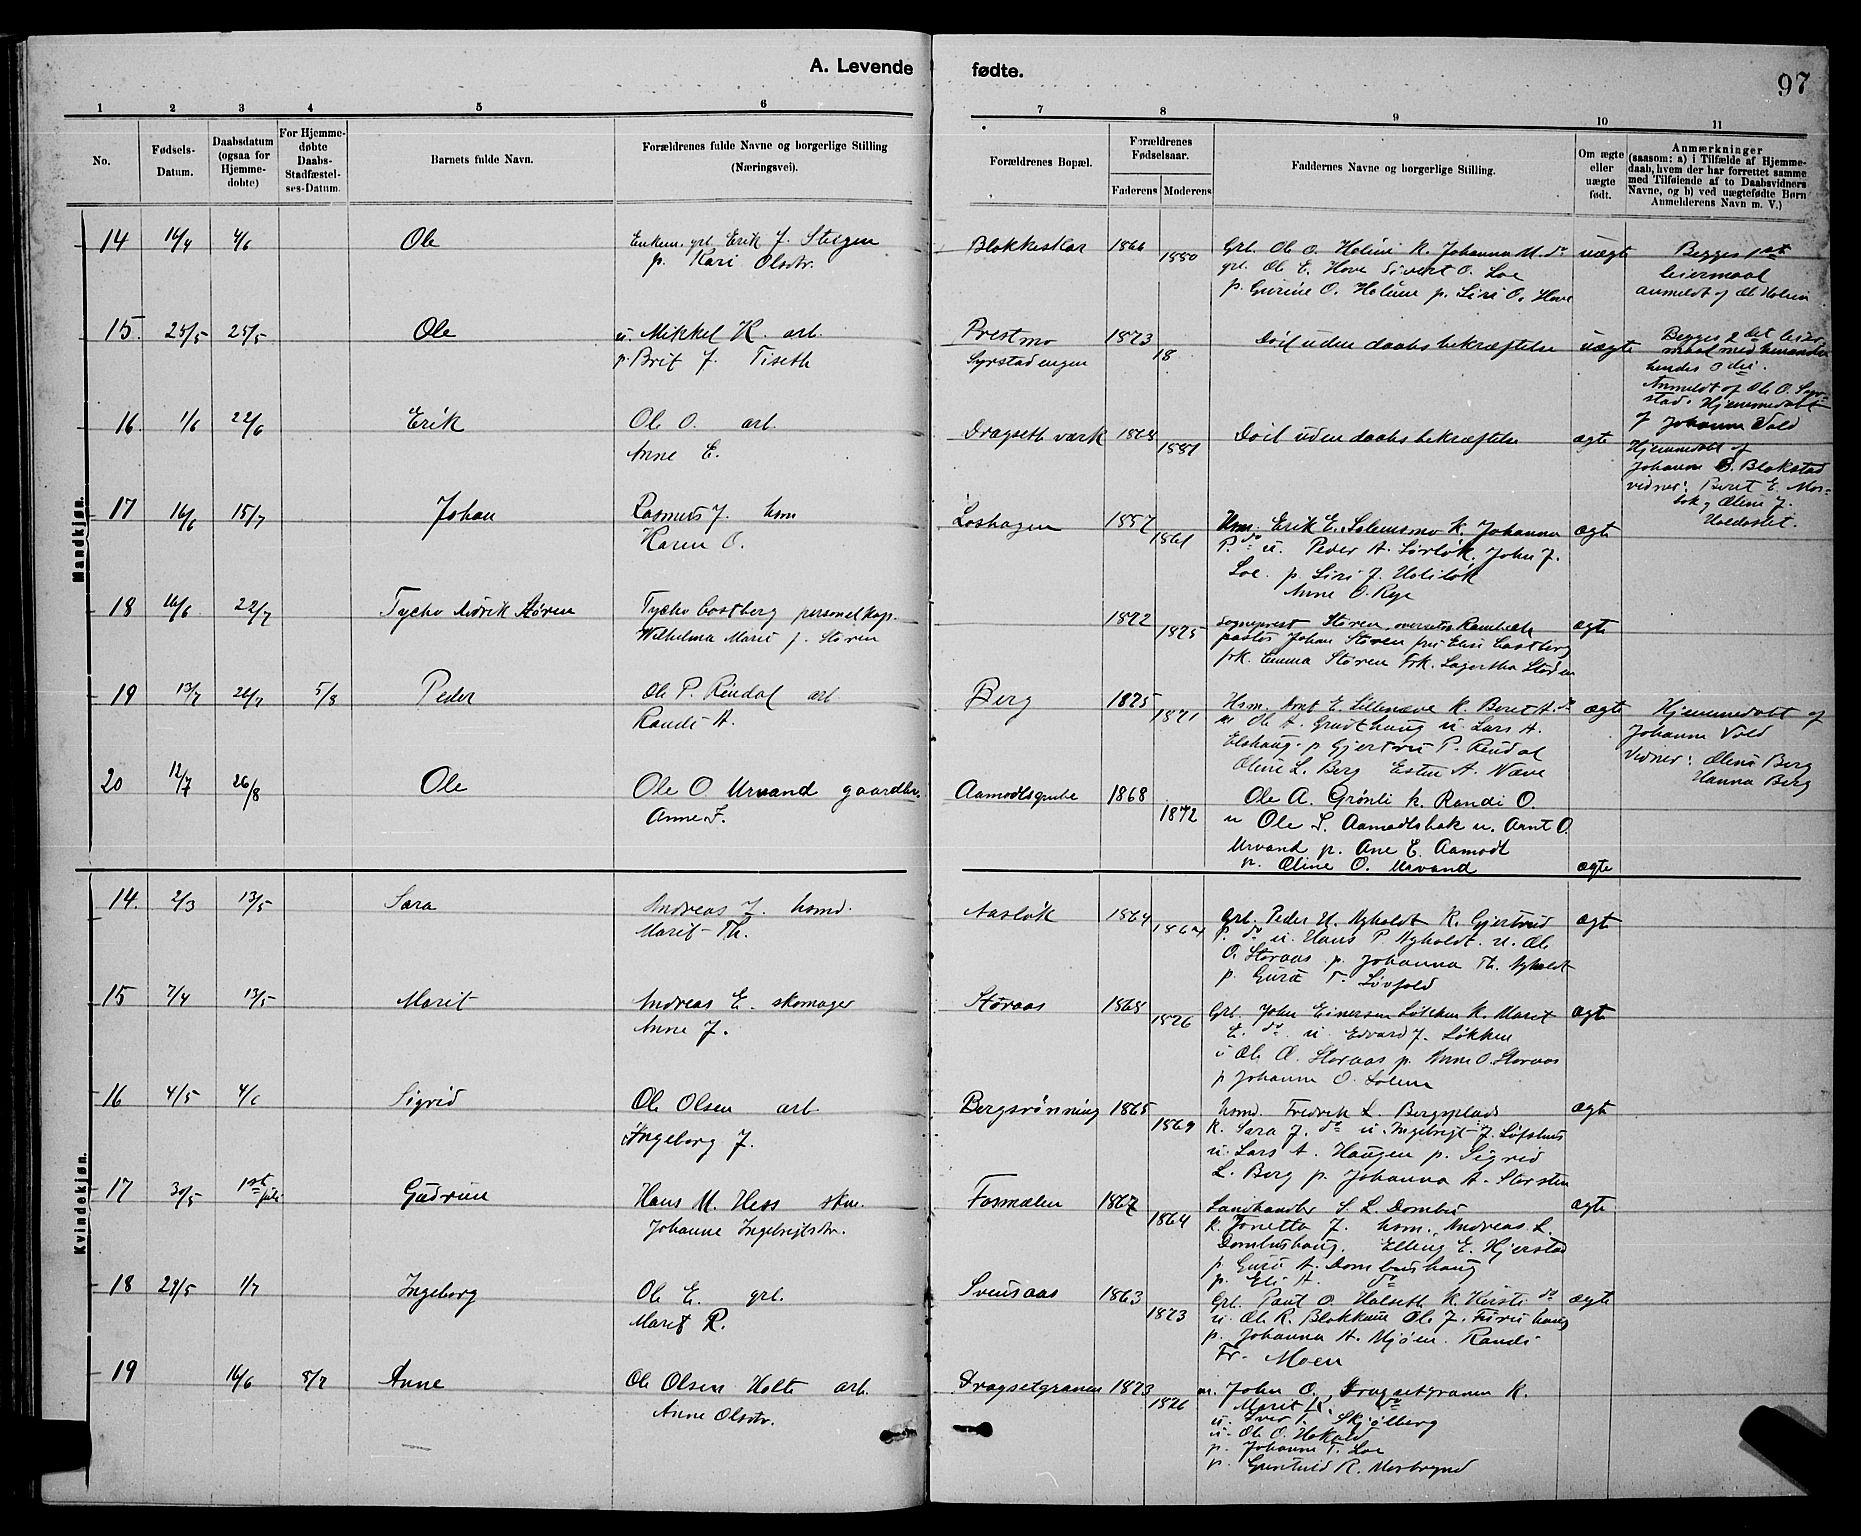 A. Levende fødte.
97
1 2 3 4 5 6 7 8 9 10 11
No.
Fødsels-
Datum.
Daabsdatum
(ogsaa for
Hjemme-
døbte)
For Hjemme-
døbte
Daabs-
Stadfæstel-
ses-Datum.
Barnets fulde Navn.
Forældrenes fulde Navne og borgerlige Stilling
(Næringsvei).
Forældrenes Bopæl.
Forældrenes
Fødselsaar.
Faderens Moderens
Faddernes Navne og borgerlige Stilling.
Om ægte
eller
uægte
født.
Anmærkninger
(saasom: a) i Tilfælde af Hjemme-
daab, hvem der har forrettet samme
med Tilføiende af to Daabsvidners
Navne, og b) ved uægtefødte Børn
Anmelderens Navn m. V.)
Mandkjøn.
14 16/4 4/6 Ole
Enkem. grl. Erik J. Steigen
p. Kari Olsdtr.
Blokkeskar 1866 1880
Grl. Ole O. Holim K. Johanna M. do
grl. Ole E. Hove Sivert O. Loe
p. Gurine O. Holum p. Siri O. Hove
uægte
Begges 1st
leiermaal
anmeldt af Ole Holum
15. 25/5 25/5 Ole
u. Mikkel K. arb.
p. Brit J. Tiseth
Prestmo 1873
Syrstadengen 18
Død uden daabsbekræftelse uægte
Begges 2det leier-
maal med hinanden
Anmeldt af Ole O. Syr-
stad. Hjemmedøbt
af Johanna Vold
16. 1/6 22/6 Erik
Ole O. arb.
Anne E.
Dragseth værk 1868 1881
Død uden daabsbekræftelse ægte
Hjemmedøbt af
Johanna B. Blokstad
vidner: Beret E. Mos-
bok og Oline J.
17 16/6 15/7 Johan
Rasmus J. hsm
Karen O.
Loshagen 1857 1861
Hsm. Erik E. Solemsmo K. Johanna
P. do u. Peder A. Sørløk. John J.
Loe. p. Siri J. Uoliløk
Anne O. Rye
ægte
18 16/6 22/7 Tycho Didrik Støren
Tycho Castberg personelkap.
Wilhelma Marie f. Støren
1872 1875
sogneprest Støren
pastor Johan Støren fru Elise Castberg
frk. Emma Støren Frk. Lagertha Støren
ægte
19 13/7 26/7 5/8 Peder
Ole P. Rindal arb
Randi A.
Berg 1875 1871
Hsm. Arnt E. Lillenæve K. Beret A. do
u. Ole A. Grudthaug u. Lars A.
Elshaug. p Gjertru P. Rindal
Oline L. Berg Esten A. Næve
ægte
Hjemmedøbt af
Johanna Vold
Vidner: Oline Berg
Hanna Berg
20 12/7 26/8 Ole
Ole O. Urvand gaardbr.
Anne I.
Aamodtsgrube 1868 1872
Ole A. Grønli k. Randi O
u Ole S. Aamodtsbak u. Arnt O.
Urvand p. Ane E. Aamodt
p. Oline O. Urvand
ægte
Kvindekjøn.
14. 2/3 13/5 Sara
Andreas J. hsmd.
Marit Th.
Aasløk 1864 1864
Grl. Peder H. Nyholdt K. Gjertrud
P. do u. Hans P Nyholdt. u. Ole
O. Storaas p. Johanna Th. Nyholdt
p. Guru T. Løvfold
ægte
15 7/4 13/5 Marit
Andreas E. skomager
Anne J.
Storaas 1868 1876
Grl. John Einersen Løkken K. Marit
E. do u. Edvard J. Løkken
u Ole O. Storaas p. Anne O. Storaas
p Johanna O. Solem
ægte
16 4/5 4/6 Sigrid
Ole Olsen arb
Ingeborg J.
Bergsrønning 1865 1869
hsmd. Fredrik L. Bergsplads
K. Sara J. do u. Ingebrigt J. Løfshus
u. Lars A. Haugen p. Sigrid
L. Berg p. Johanna A. Storsten
ægte
17 30/5 1st juli Gudrun
Hans M. Hess skm.
Johanne Ingebrigtsdtr.
Fosmælen 1867 1864
Landhandler S. L. Dombu
K. Jonetta J. hsm. Andreas L.
Dombushaug. Elling E. Hjerstad
p Guru A. Dombushaug
p. Eli A. do
ægte
18 29/5 1/7 Ingeborg
Ole E. grl.
Marit R.
Svensaas 1863 1873
Grl. Paul O. Halseth K. Kirsti do
u. Ole R. Blokkum Ole J. Furuhaug
p. Johanna A. Mjøen. Randi
Fr. Moen
ægte
19 16/6 8/7 Anne
Ole Olsen Holte arb.
Anne Olsdtr.
Dragsetgranen 1873 1876
m. John O. Dragsetgranen K.
Marit K. do
u. Iver T. Skjølberg
u. Ole O. Hokald
p. Johanne T. Loe
p. Gunhild R. Mosbrynd